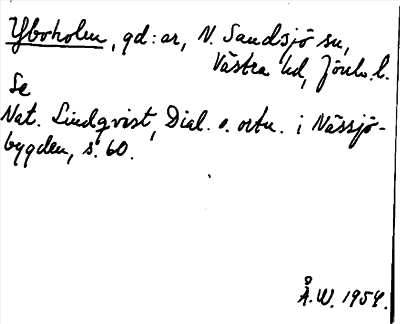 Yboholm, gd:ar, N. Sandsjö sn,
Västra hd, Jönk. l.
Se
Nat. Lindqvist, Dial. o. ortn. i Nässjö-
bygden, s. 60.
Å.W. 1954.